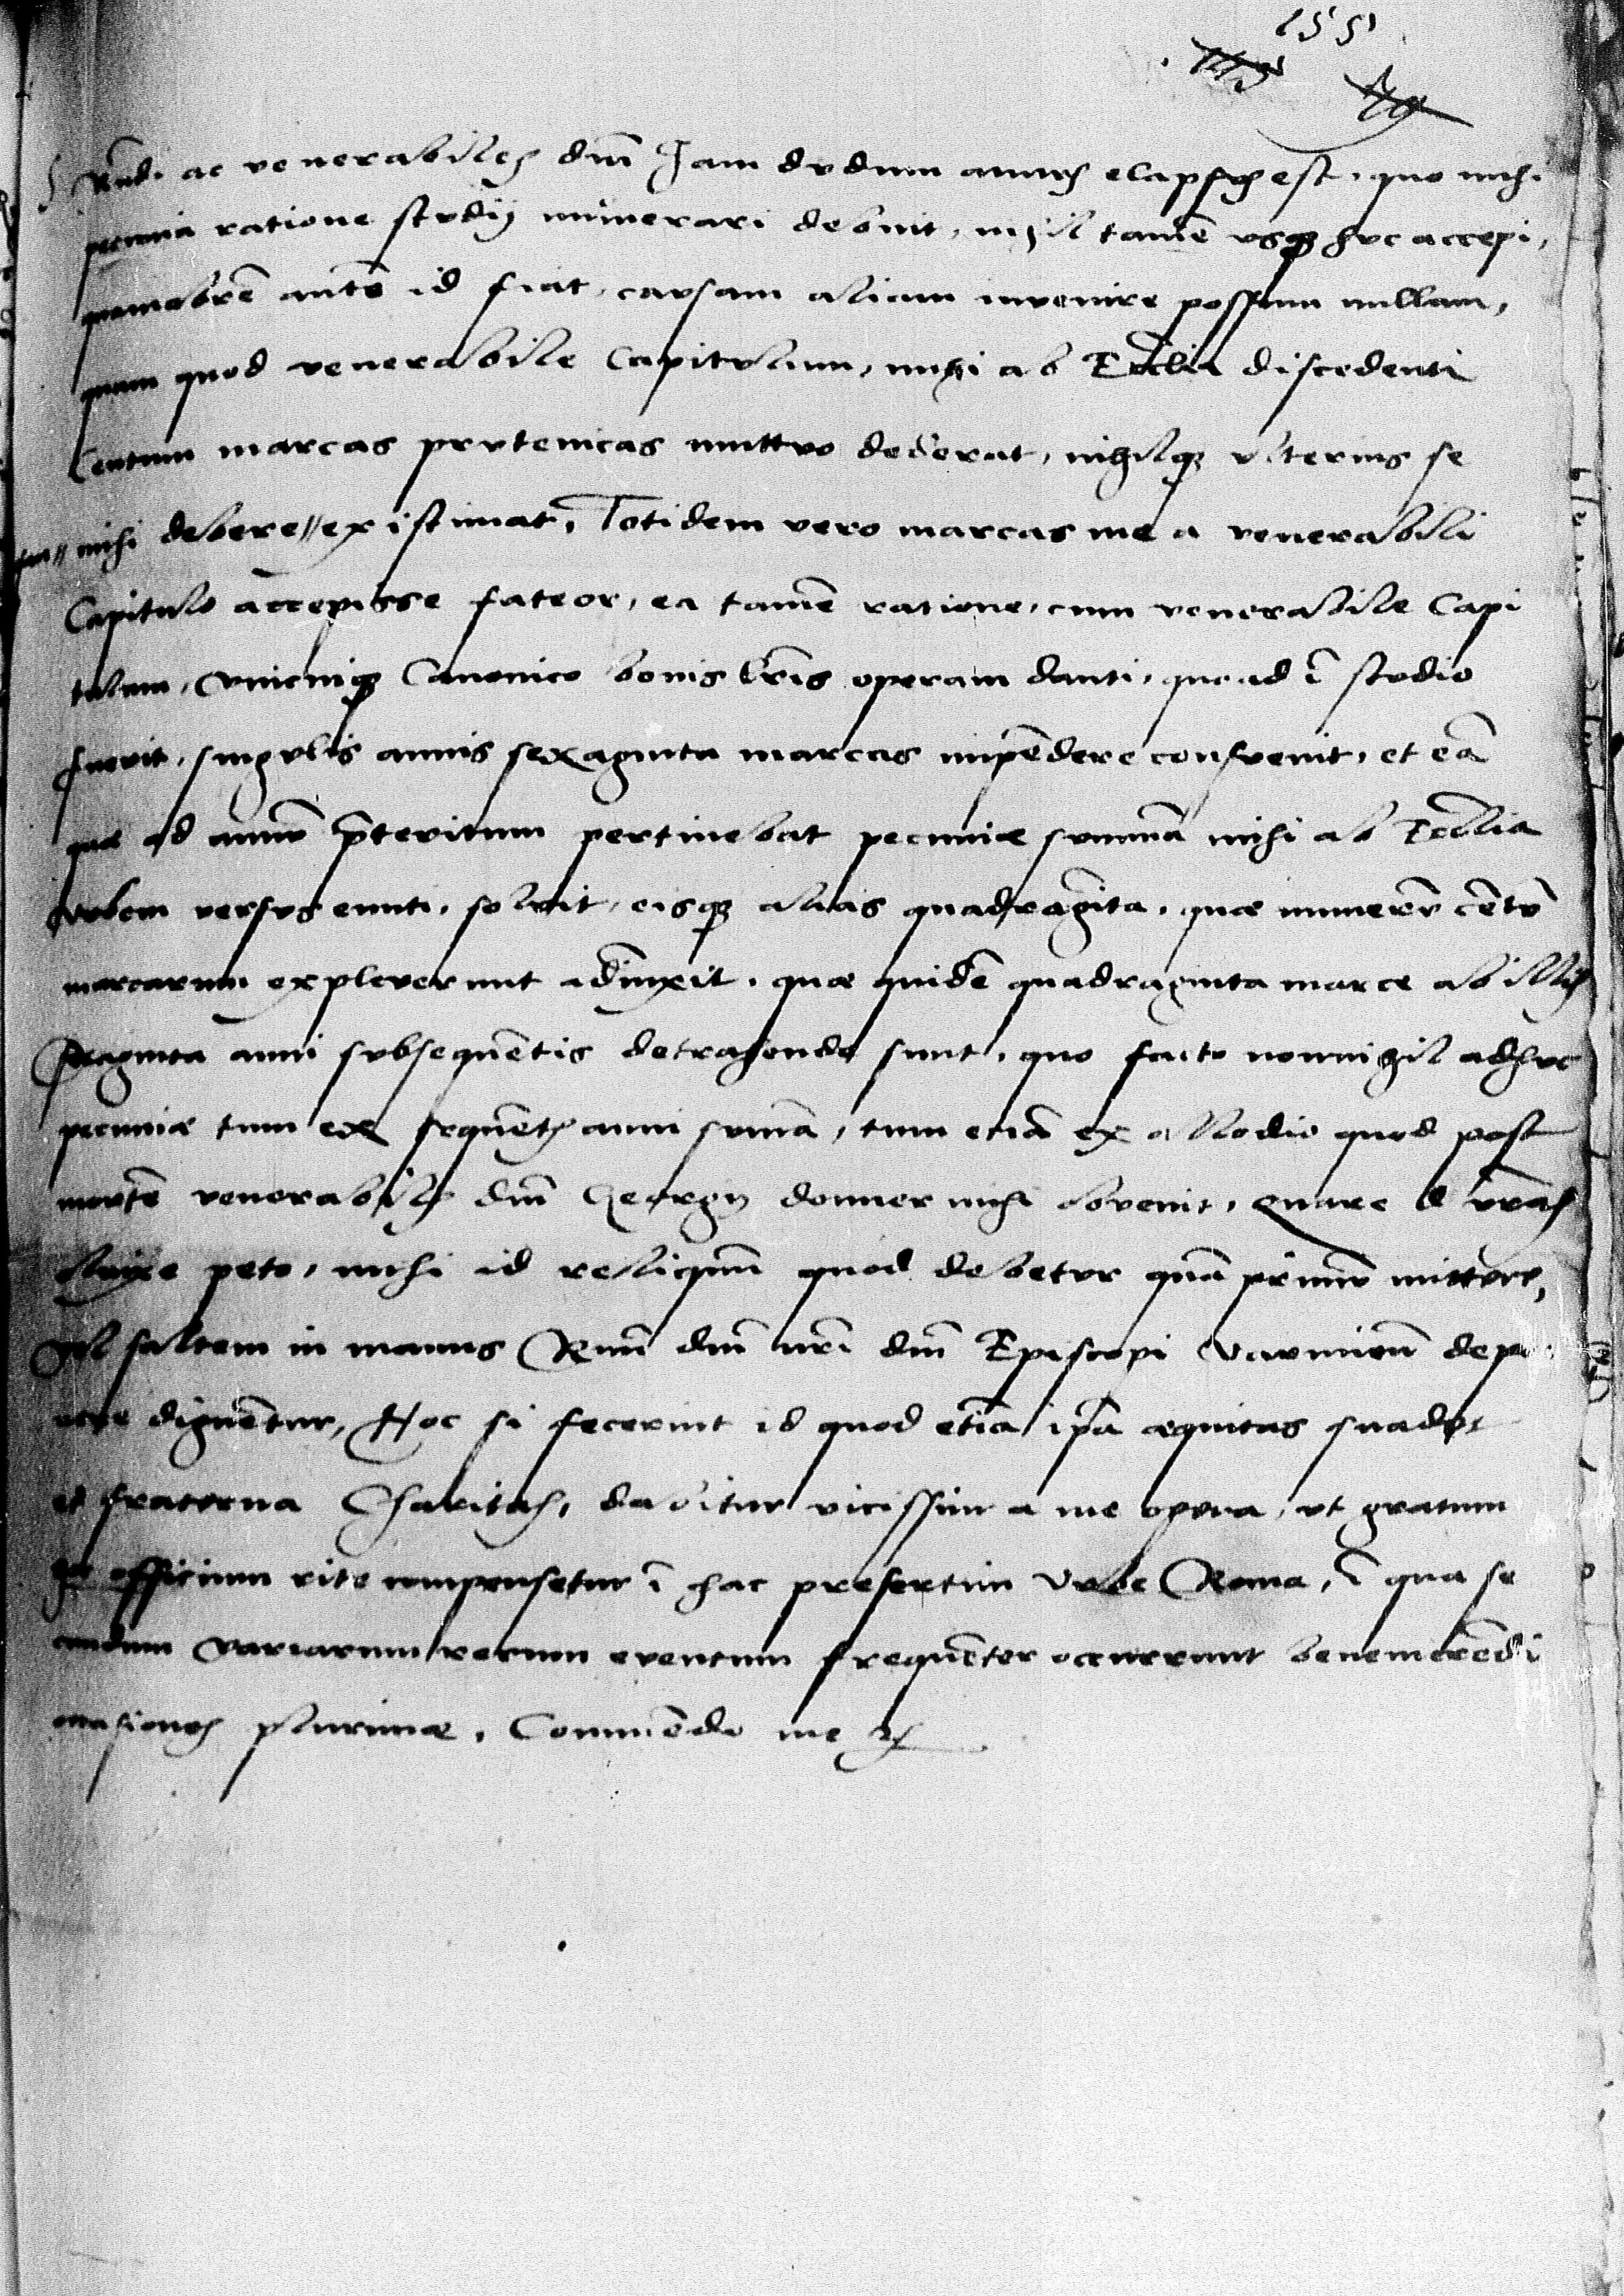 1551
Rndi ac venerabiles dni Iam dudum annus elapsus est, quo mihi
pecunia ratione studij numerari debuit, nihil tamē usq huc accepi,
quamobrē autē id fiat, causam aliam invenire possum nullam,
quam quod venerabile Capitulum, mihi ab Ecclia discedenti
Centum marcas prutenicas mutuo dederat, nihilq ulterius se
mihi debere // existimat, Totidem vero marcas me a venerabili
Capitulo accepisse fateor, ea tamē ratione, cum venerabile Capi
tulum, Unicuiq Canonico bonis lris operam danti, quoad ī studio
fuerit, singulis annis sexaginta marcas impēdere consuevit, et eā
quæ ad annū p̄teritum pertinebat pecuniæ summā mihi ab Ecclia
Urbem versus eunti, solvit, eisq alias quadragīta, quæ numerū cētū
marcarum expleverunt adiunxit, quæ quidē quadraginta marcæ ab illis
sexaginta anni subsequētis detrahendæ sunt, quo facto nonnihil adhuc
pecuniæ tum ex sequētis anni sumā, tum etiā ex allodio quod post
mortē venerabilis dni Georgij donner mihi obvenit, Quare a vris
obnixe peto, mihi id reliquum quod debetur quā primū mittere,
vel saltem in manus Rmi dni nri dni Episcopi Varmien depo
nere dignētur, Hoc si fecerint id quod etiā ip̄a æquitas suadet
et fraterna Charitas, dabitur vicissim a me opera, ut gratum
hoc officium rite compensetur ī hac presertim Urbe Roma, ī qua se
cundum variarum rerum eventum frequēter occurrunt benemerēdi
occasiones plurimæ, Commēdo me